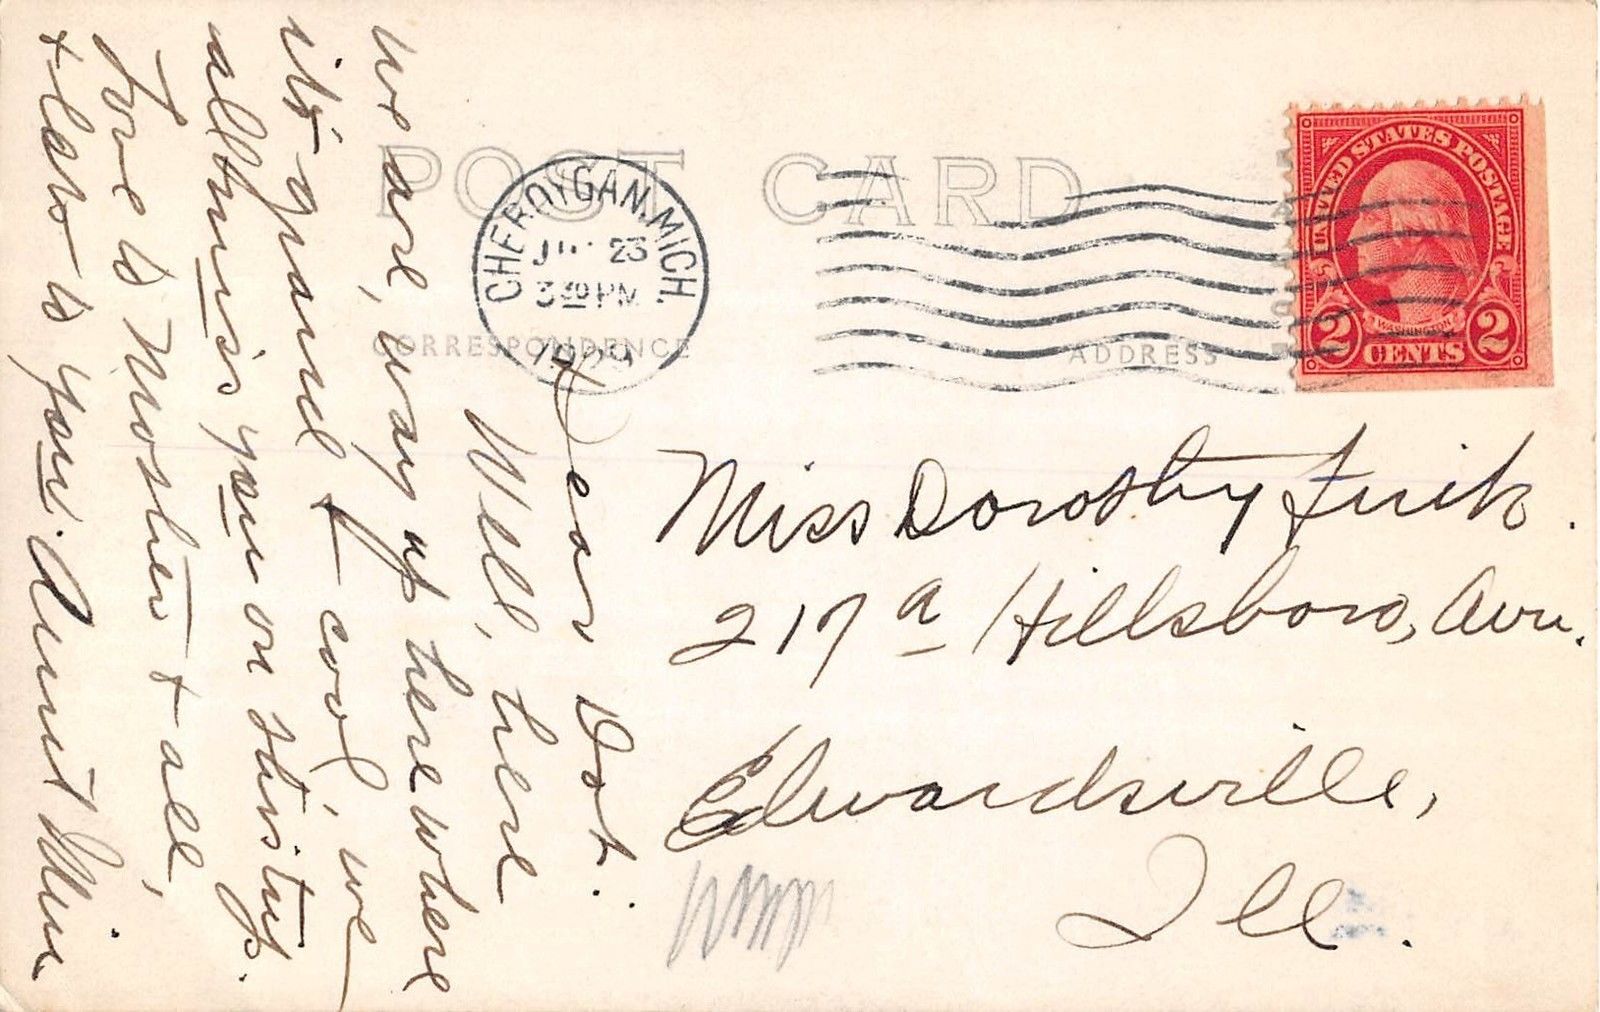 POST CARD
CHEBOYGAN, MICH.
23
3 30 PM
1929
CORRESPONDENCE
ADDRESS
UNITED STATES POSTAGE
WASHINGTON
2 CENTS 2
Dear Dot.
Well, here
we are, way up here where
it's grand & cool, we
all miss you on this trip.
Love to Mother & all,
& lots to you. Aunt Min
Miss Dorothy
217 a Hillsboro, Ave.
Edwardsville,
Ill.